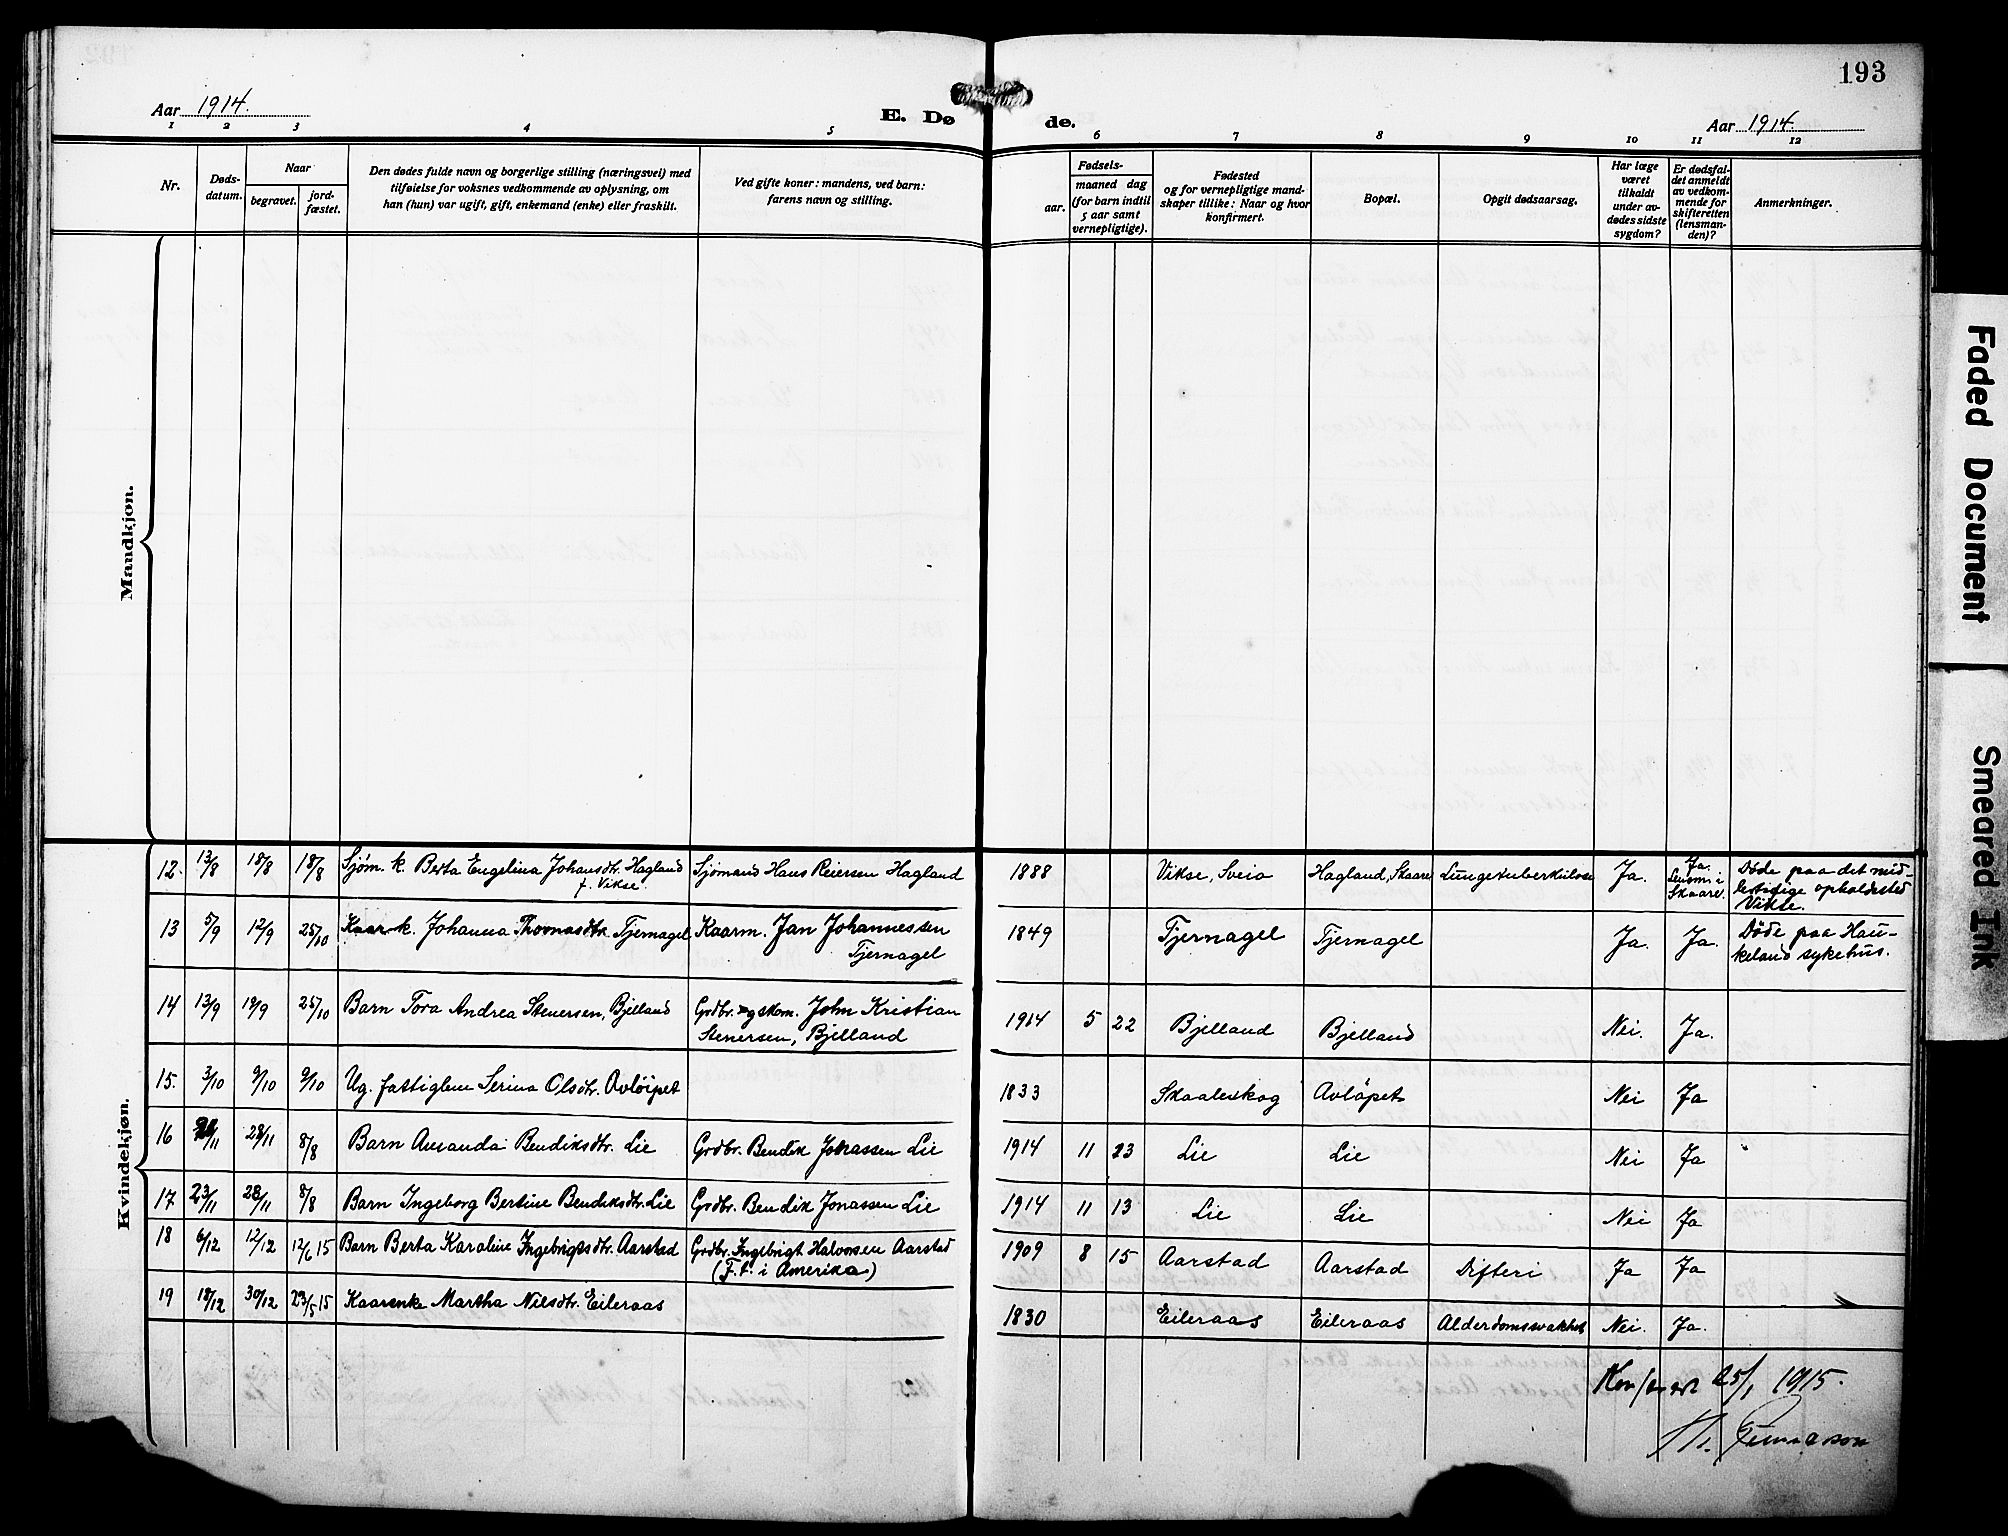 193
Aar 1914.
E. Dø de.
Aar 1914.
1 2 3 4 5 6 7 8 9 10 11 12
Nr.
Døds-
datum.
Naar
begravet.
jord-
fæstet.
Den dødes fulde navn og borgerlige stilling (næringsvei) med
tilføielse for voksnes vedkommende av oplysning, om
han (hun) var ugift, gift, enkemand (enke) eller fraskilt.
Ved gifte koner: mandens, ved barn:
farens navn og stilling.
Fødsels-
aar.
maaned dag
(for barn indtil
5 aar samt
vernepligtige).
Fødested
og for vernepligtige mand-
skaper tillike: Naar og hvor
konfirmert.
Bopæl.
Opgit dødsaarsag.
Har læge
været
tilkaldt
under av-
dødes sidste
sygdom?
Er dødsfal-
det anmeldt
av vedkom-
mende for
skifteretten
(lensman-
den)?
Anmerkninger.
Mandkjøn.
Kvindekjøn.
12. 13/8 18/8 18/8 Sjøm. k. Berta Engelina Johansdtr. Hagland
f. Vikse.
Sjömand Hans Reiersen Hagland 1888 Vikse, Sveio Hagland, Skaare Lungetuberkulose Ja. Ja.
Lensm. i
Skaare.
Döde paa det mid-
lertidige opholdssted
Vikse.
13 5/9 12/9 25/10 Kaar k. Johanna Thomasdtr. Tjernagel Kaarm. Jan Johannessen
Tjernagel
1849 Tjernagel Tjernagel Ja. Ja. Döde paa Hau-
keland sykehus.
14 13/9 19/9 25/10 Barn Tora Andrea Stenersen, Bjelland Grdbr. og skom. John Kristian
Stenersen, Bjelland
1914 5 22 Bjelland Bjelland Nei. Ja.
15. 3/10 9/10 9/10 Ug. fattiglem Serina Olsdtr. Avlöipet 1833 Skaaleskog Avlöpet Nei Ja
16 28/11 8/8 Barn Amanda Bendiksdtr. Lie Grdbr. Bendik Johassen Lie 1914 11 23 Lie Lie Nei Ja
17 23/11 28/11 8/8 Barn Ingeborg Bertine Bendiksdtr. Lie Grdbr. Bendik Jonassen Lie 1914 11 13 Lie Lie Nei Ja
18 6/12 12/12 12/6 15 Barn Berta Karoline Ingebrigtsdtr. Aarstad Grdbr. Ingebrigt Halvorsen Aarstad
(F. t. i Amerika)
1909 8 15 Aarstad Aarstad Difteri Ja Ja
19 18/12 30/12 23/5 15 Kaarenke Martha Nilsdtr. Eileraas 1830 Eileraas Eileraas Alderdomssvakhet Nei. Ja.
25/1 1915.
Faded Document
Smeared Ink